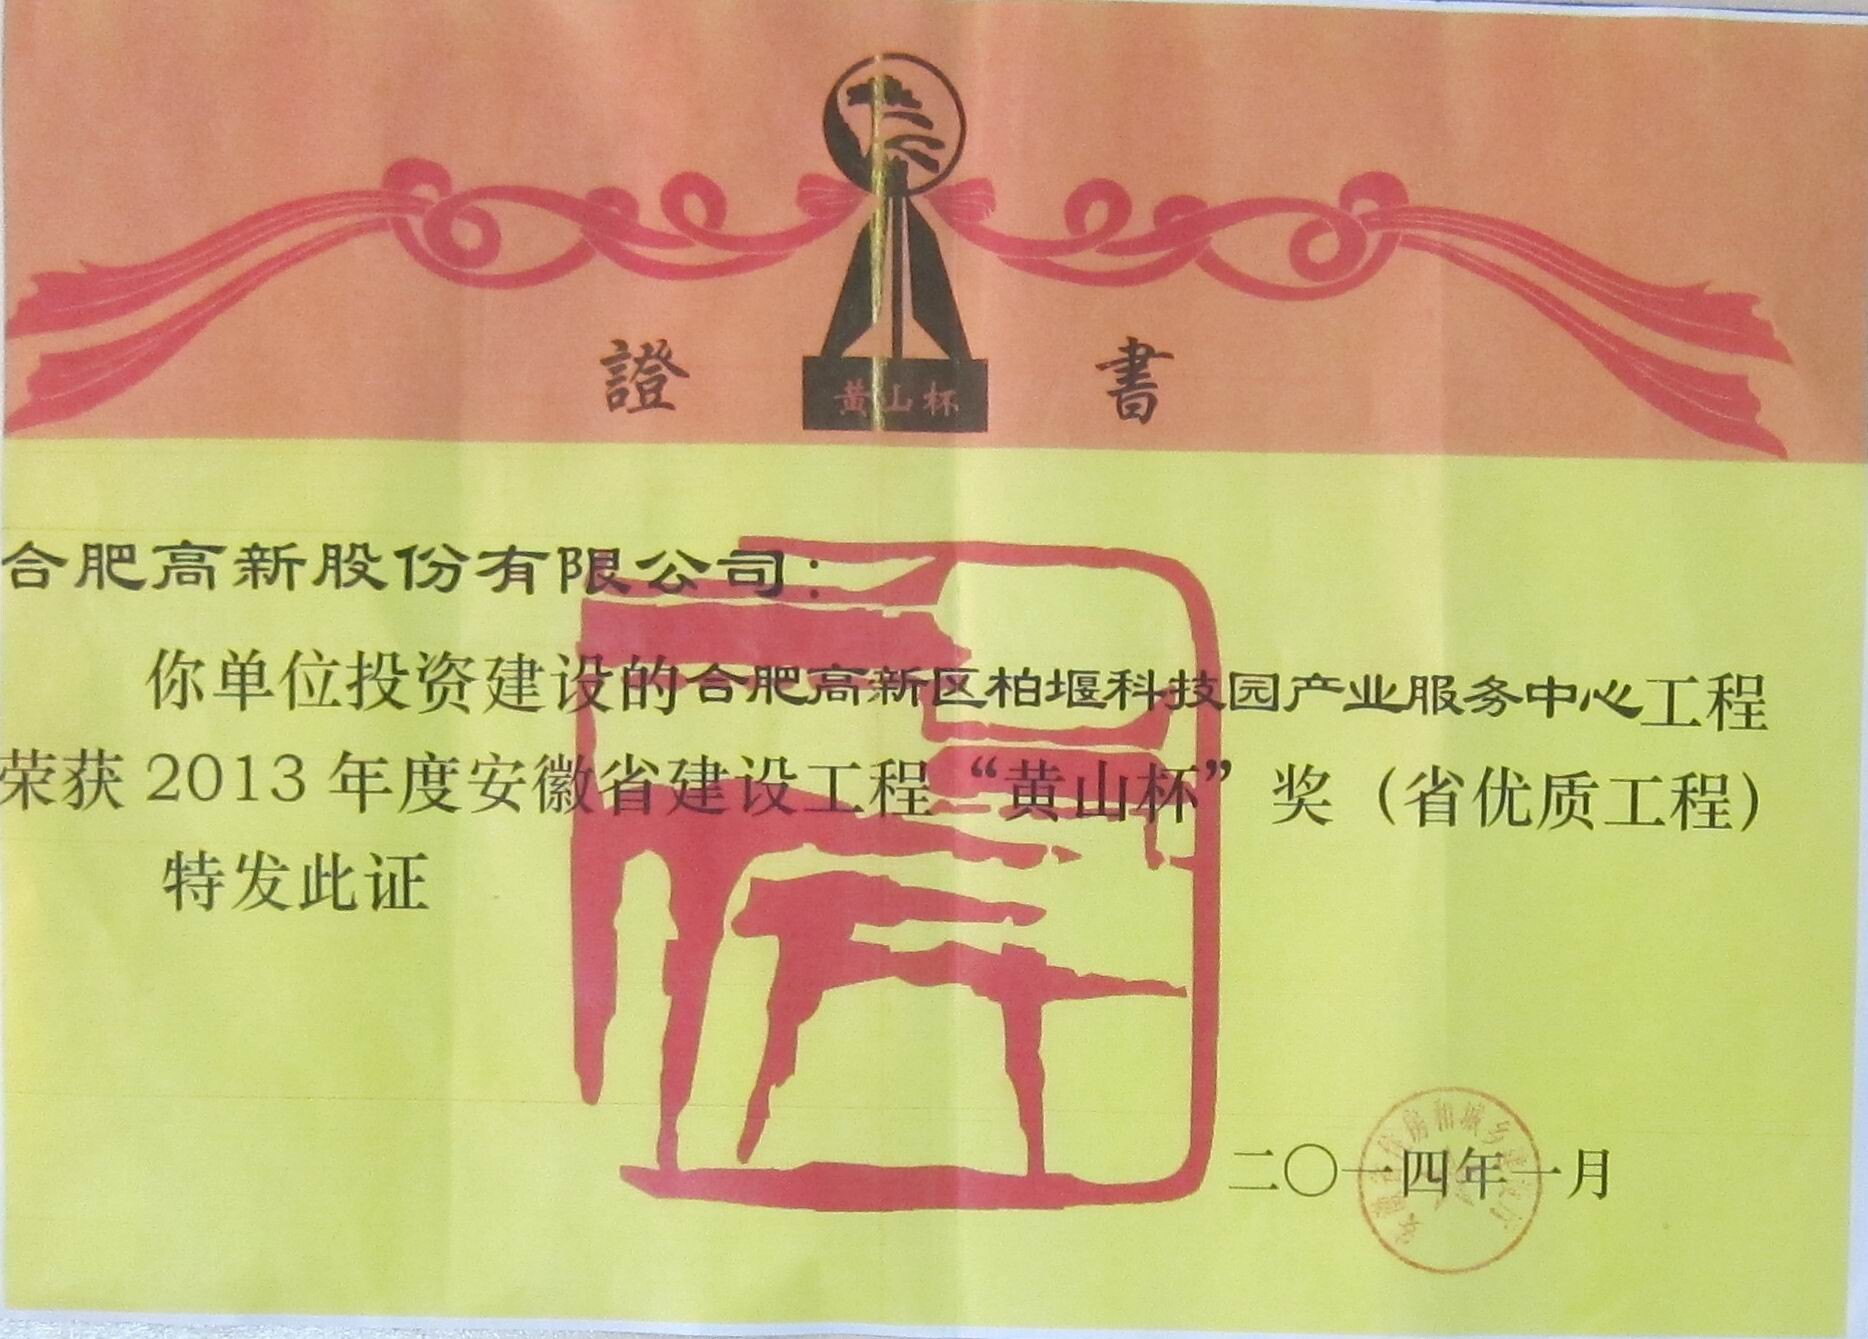 證 書
黄山杯
合肥高新股份有限公司：
你单位投资建设的合肥高新区柏堰科技园产业服务中心工程
荣获 2013 年度安徽省建设工程“黄山杯”奖（省优质工程）
特发此证
二〇一四年一月
安徽省住房和城乡建设厅